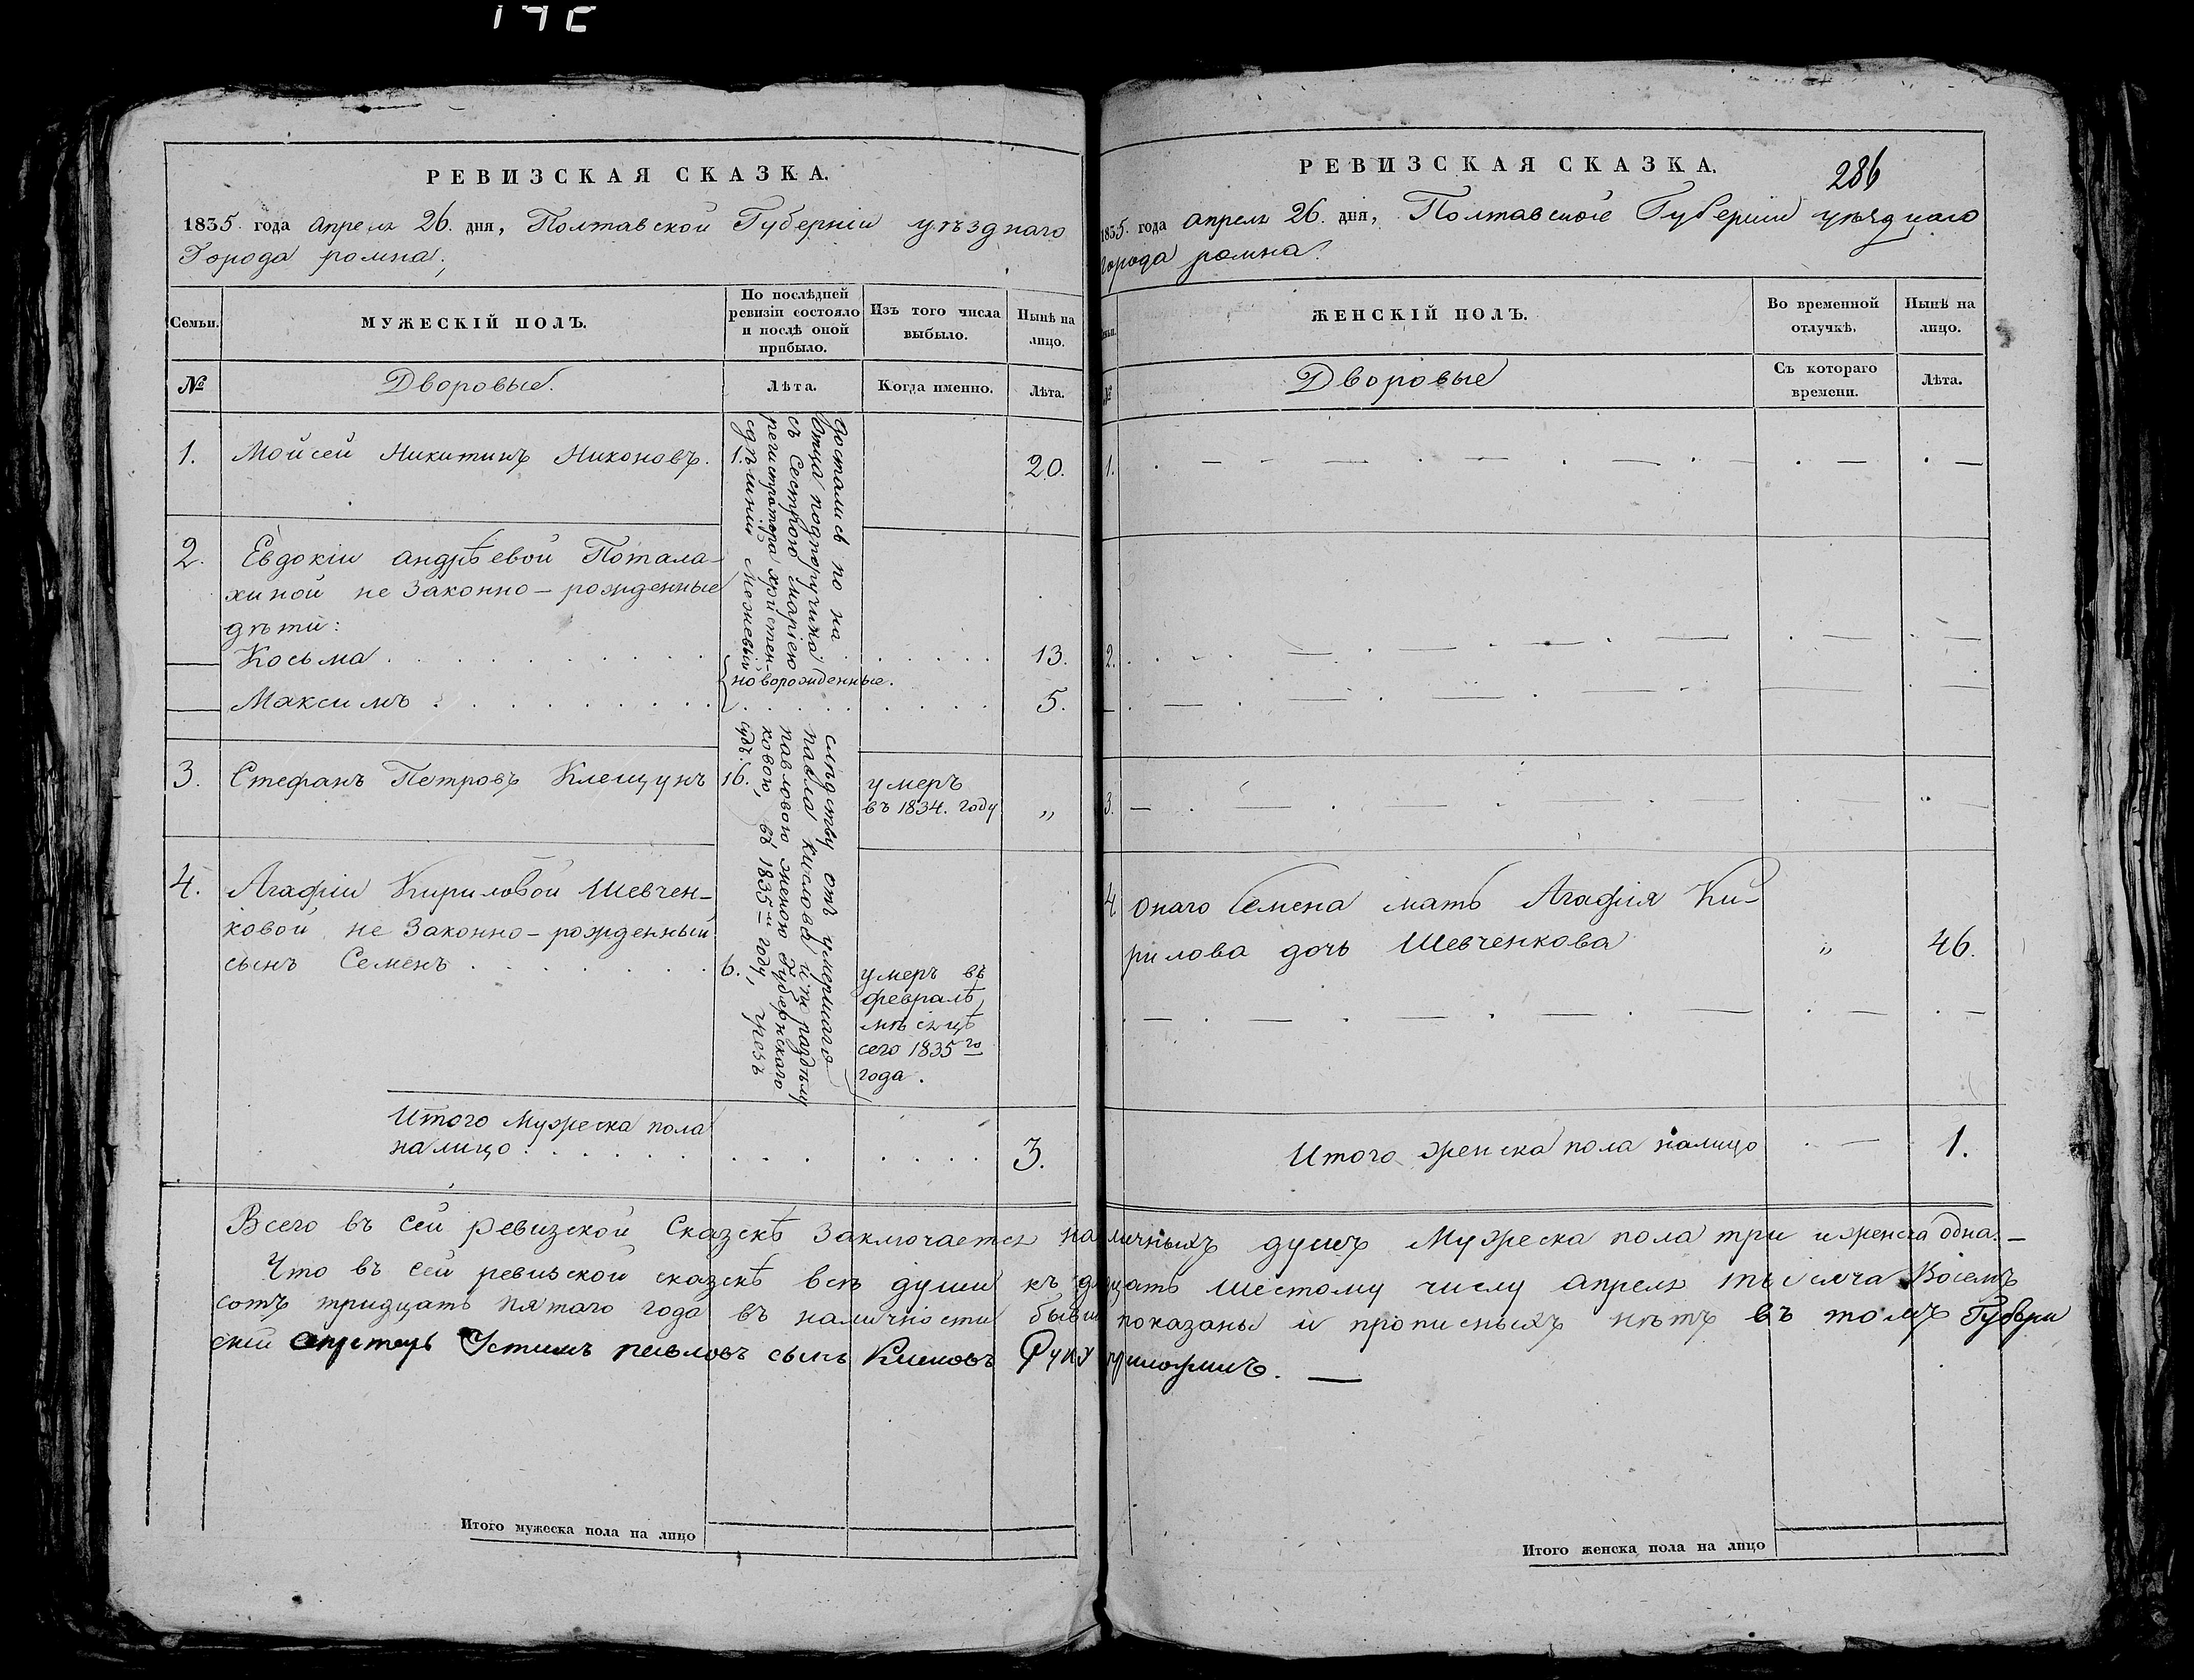 РЕВИЗСКАЯ СКАЗКА.
1835. года апреля 26. дня, Полтавской Губерніи уѣзднаго
Города ромна;
Семьи.
МУЖЕСКІЙ ПОЛЪ.
По послѣдней
ревизіи состояло
и послѣ оной
прибыло.
Изъ того числа
выбыло.
Нынѣ на
лицо.
№
Дворовые.
Лѣта.
Когда именно.
Лѣта.
1. Мойсей Никитинъ Никоновъ. 1. 20.
2. Евдокіи андрѣевой Потала-
хиной не Законно-рожденные
дѣти:
Косьма 13.
новорожденные.
Максимъ 5.
3. Стефанъ Петровъ Клещунъ 16. умеръ
въ 1834. году „
4. Агафіи Кириловой Шевчен-
ковой не Законно-рожденный
сынъ Семенъ 6. умеръ въ
февралѣ
мѣсяцѣ
сего 1835го
года.
достались по на слѣдству отъ умершаго
отца подпоручика павла Кислова и по раздѣлу
съ Сестрою маріею павловою женою Губернскаго
регистратора хрйстен-ковою, въ 1835м году, чрезъ
здѣшній межевый судъ.
Итого Мужеска пола
налицо 3.
РЕВИЗСКАЯ СКАЗКА.
286
1835. года апреля 26. дня, Полтавской Губерніи уѣзднаго
города ромна.
ЖЕНСКІЙ ПОЛЪ.
Во временной
отлучкѣ.
Нынѣ на
лицо.
№
Дворовые
Съ котораго
времени.
Лѣта.
1.
2.
3.
4. Онаго Семена мать Агафія Ки-
рилова дочь Шевченкова „ 46.
Итого женска пола налицо 1.
Всего въ сей ревизской Сказкѣ Заключается наличныхъ душъ Мужеска пола три и женска одна.
Что въ сей ревизской сказкѣ всѣ души къ дцать шестому числу апреля тысяча Восемъ
сотъ тридцать пятаго года въ наличности бывш показаны и прописныхъ нѣтъ въ томъ Губерн
скій Устимъ павловъ сынъ Руку приложилъ.
Итого мужеска пола на лицо
Итого женска пола на лицо